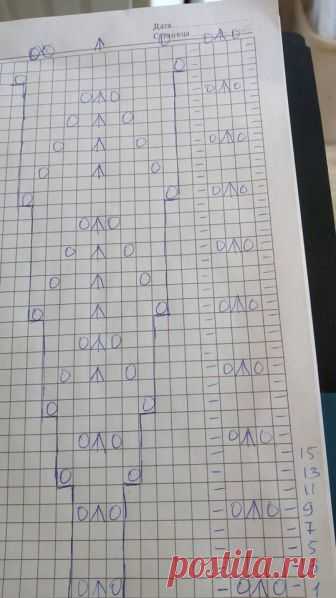 Дата
Страница
15
13
11
9
7
5
1
postila.ru